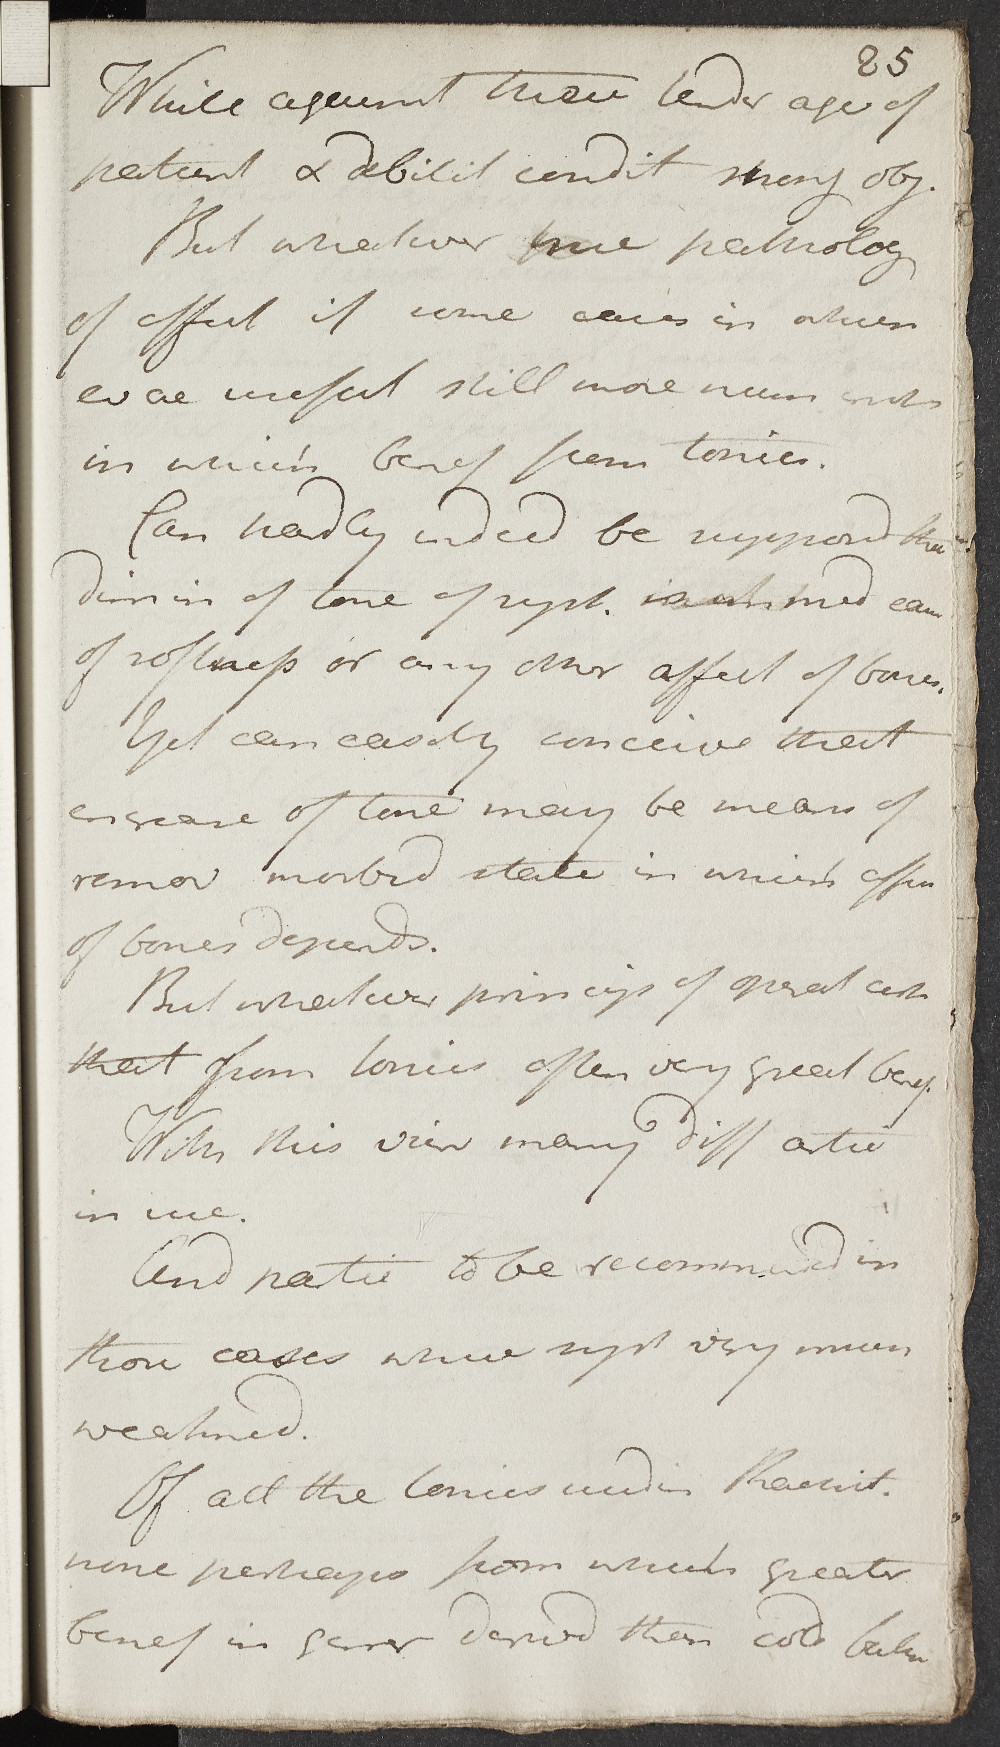 85
While against these tender age of
patient & debilit condit strong obj.
But whatever true patholog
of affect if some cases in which
evac useful still more num
in which benef from tonics.
Can hardly indeed be supposed that
dimin of tone of syst. immed caus
of softness or any other affect of bones.
Yet can easily conceive that
encrease of tone may be means of
remov morbid state in which affn
of bones depends.
But whatever princip of operat
that from tonics often very great benef.
With this view many diff artic
in use.
And partic to be recommend in
those cases where syst very much
weakned.
Of all the tonics used in Rachit.
none perhaps from which greater
benef in gener derived than cold bath